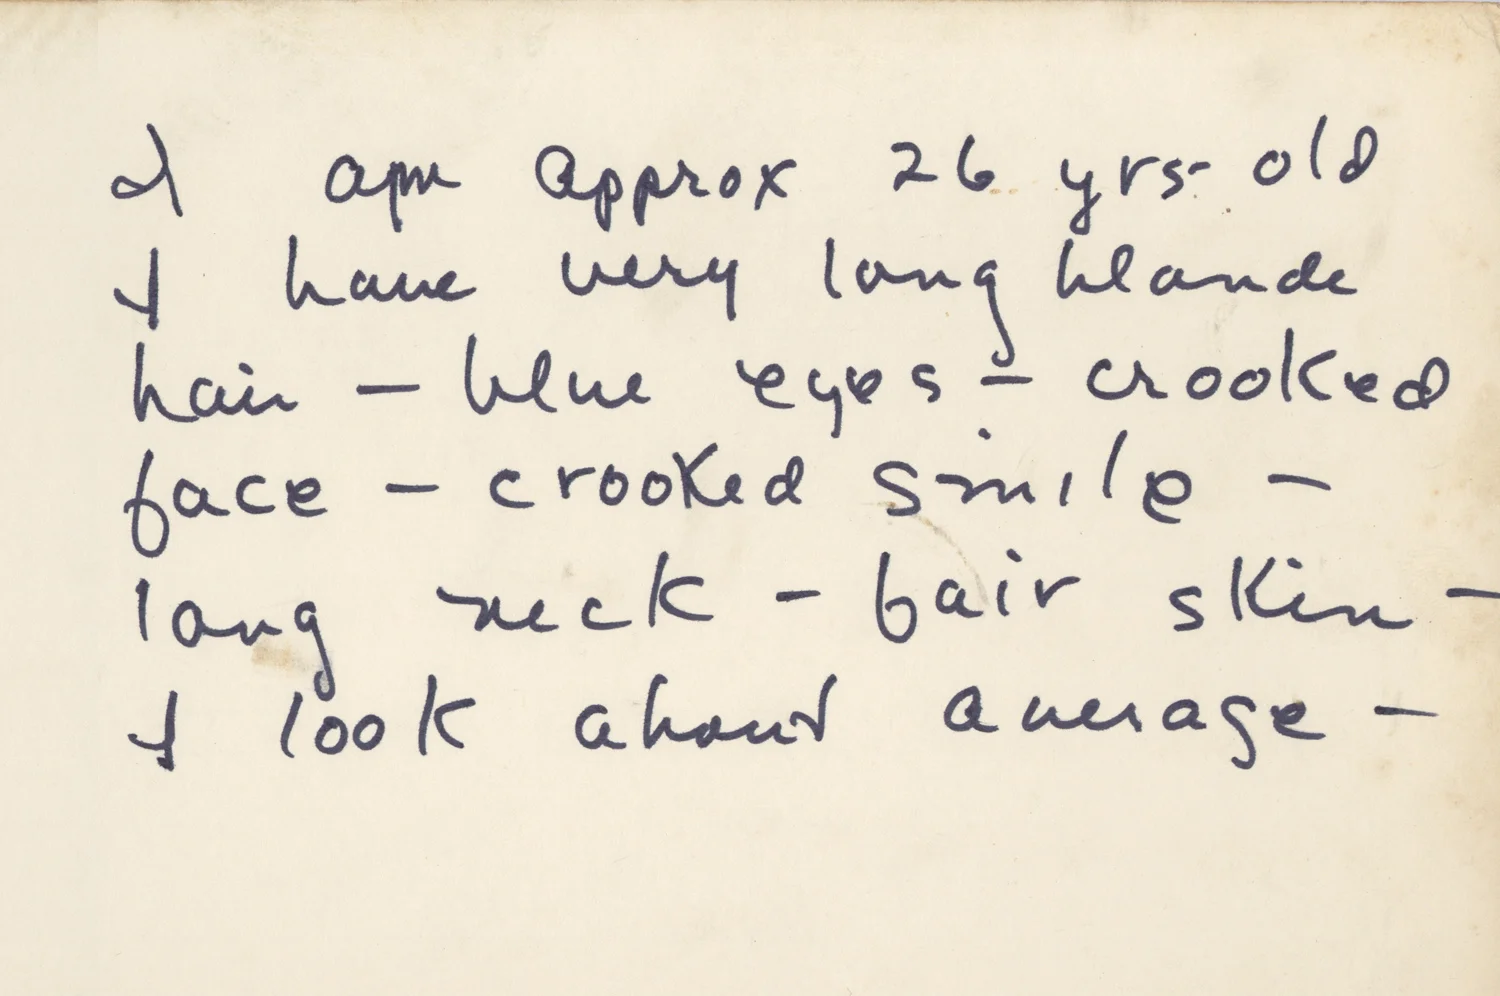 I am approx 26 yrs- old
I have very long blonde
hair – blue eyes – crooked
face – crooked smile –
long neck – fair skin –
I look about average –